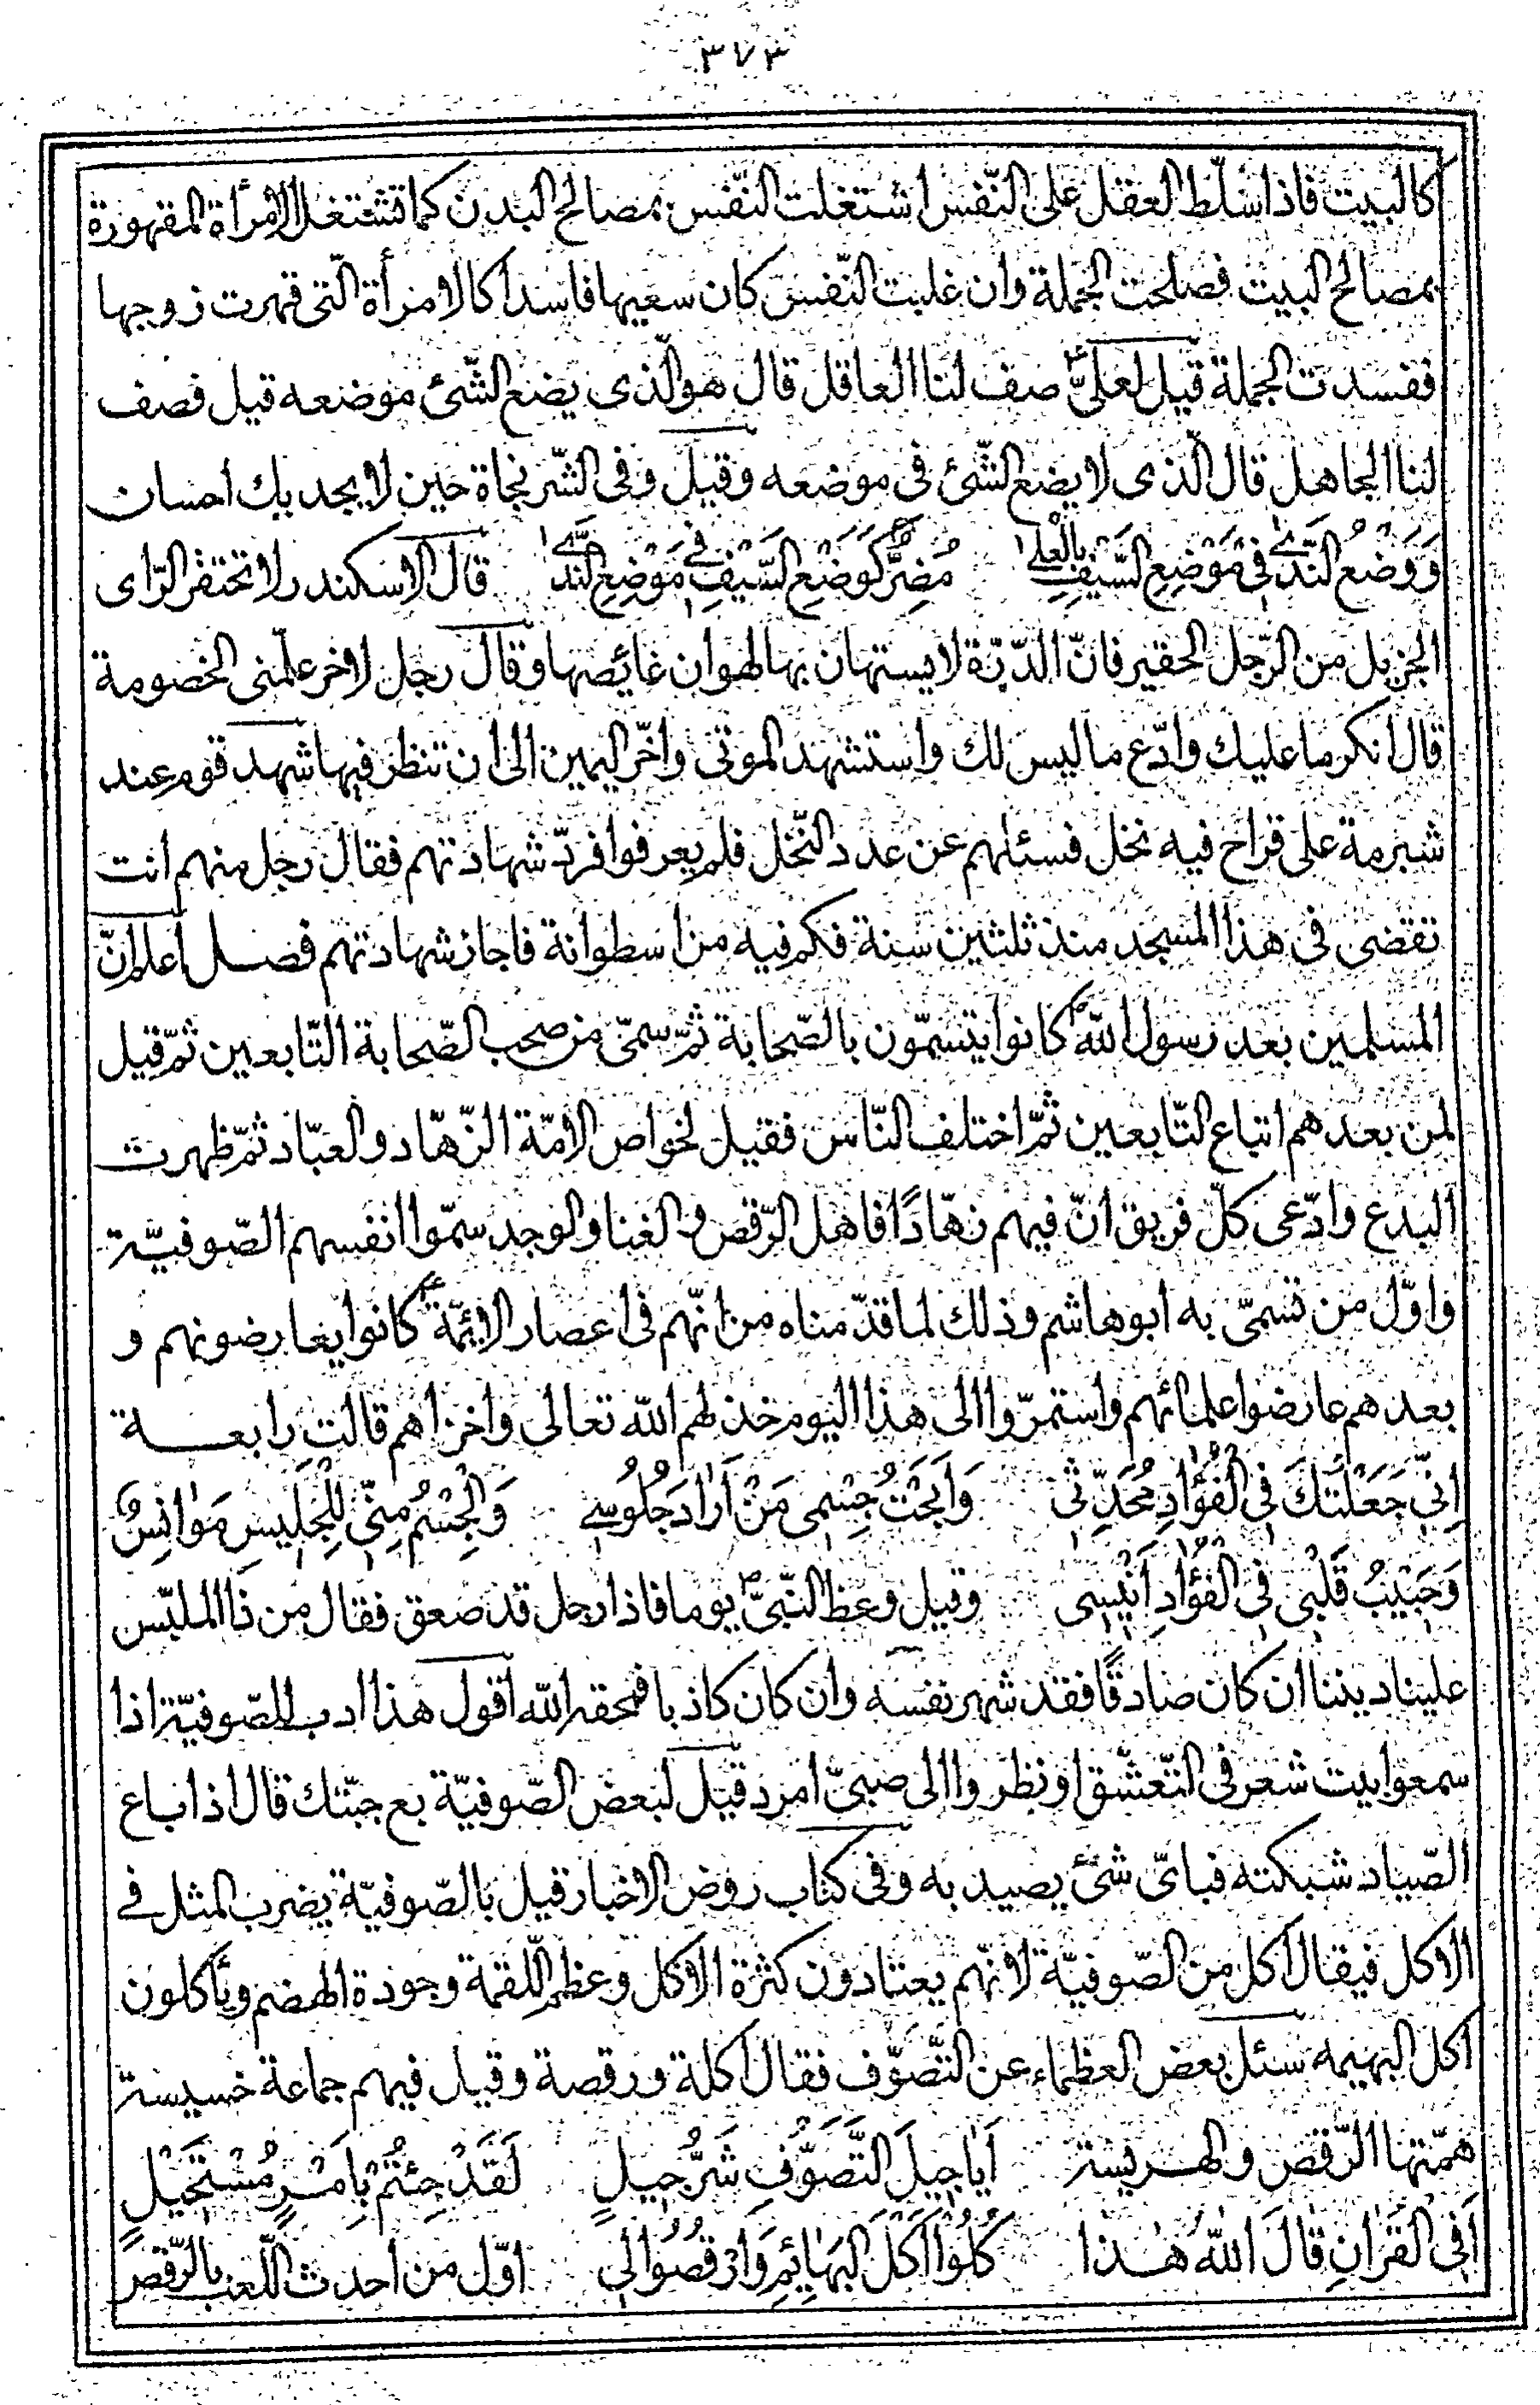 ٣٧٣
كالبيت فاذا سلّط العقل على النّفس اشتغلت النّفس بمصالح البدن كما تشتغل الامرأة المقهورة
بمصالح البيت فصلحت الجملة وان غلبت النّفس كان سعيها فاسدا كالامرأة الّتى قهرت زوجها
ففسدت الجملة قيل لعلىّ ع صف لنا العاقل قال هو الّذى يضع الشّئ موضعه قيل فصف
لنا الجاهل قال الّذى لا يضع الشّئ فى موضعه وقيل وفى الشّر نجاة حين لا يجديك احسان
وَوَضْعُ النَّدىٰ فِى مَوْضِعِ السَّيْفِ بِالْعُلىٰ مُضِرٌّ كَوَضْعِ السَّيْفِ فِى مَوْضِعِ النَّدىٰ قال الاسكندر لا تحتقر الرّاى
الجزيل من الرّجل الحقير فانّ الدّرّة لا يستهان بها لهوان غائصها وقال رجل لاخر علّمنى الخصومة
قال انكر ما عليك وادّع ما ليس لك واستشهد الموتى واخّر اليمين الى ان تنظر فيها شهد قوم عند
شبرمة على قراح فيه نخل فسئلهم عن عدد النّخل فلم يعرفوا فردّ شهادتهم فقال رجل منهم انت
تقضى فى هذا المسجد منذ ثلثين سنة فكم فيه من اسطوانة فاجاز شهادتهم فصل اعلم انّ
المسلمين بعد رسول اللّه ص كانوا يتسمّون بالصّحابة ثمّ سمّى من صحب الصّحابة التّابعين ثمّ قيل
لمن بعدهم اتباع التّابعين ثمّ اختلف النّاس فقيل لخواص الامّة الزّهّاد والعبّاد ثمّ ظهرت
البدع وادّعى كلّ فريق انّ فيهم زهّادًا فاهل الرّقص والغنا والوجد سمّوا انفسهم الصّوفيّة
واوّل من تسمّى به ابو هاشم وذلك لما قدّمناه من انّهم فى اعصار الائمّة ع كانوا يعارضونهم و
بعدهم عارضوا علمائهم واستمرّوا الى هذا اليوم خذلهم اللّه تعالى واخزاهم قالت رابعة
اِنِّى جَعَلْتُكَ فِى الْفُؤٰادِ مُحَدِّثى وَاَبَحْتُ جِسْمى مَنْ اَرٰادَ جُلُوسى وَالْجِسْمُ مِنِّى لِلْجَليسِ مَوٰانِسٌ
وَحَبيبُ قَلْبى فِى الْفُؤٰادِ اَنيسى وقيل وعظ النّبىّ ص يوما فاذا رجل قد صعق فقال من ذا الملبّس
علينا ديننا ان كان صادقًا فقد شهر نفسه وان كان كاذبا فمحقه اللّه اقول هذا ادب للصّوفيّة اذا
سمعوا بيت شعر فى التّعشّق او نظروا الى صبىّ امرد قيل لبعض الصّوفيّة بع جبّتك قال اذا باع
الصّياد شبكته فباىّ شئ يصيد به وفى كتاب روض الاخيار قيل بالصّوفيّة يضرب المثل فى
الاكل فيقال اكل من الصّوفيّة لانّهم يعتادون كثرة الاكل وعظم اللّقمة وجودة الهضم ويأكلون
اكل البهيمه سئل بعض العظماء عن التّصوّف فقال اكلة ورقصة وقيل فيهم جماعة خسيسة
همّتها الرّقص والهريسة اَيٰا جيلَ التَّصَوُّفِ شَرَّ جيلٍ لَقَدْ جِئْتُمْ بِاَمْرٍ مُسْتَحيلٍ
اَفِى الْقُرْاٰنِ قٰالَ اللّٰهُ هٰذا كُلُوا اَكْلَ الْبَهٰائِمِ وَارْقُصُوالى اوّل من احدث اللّعب بالرّقص